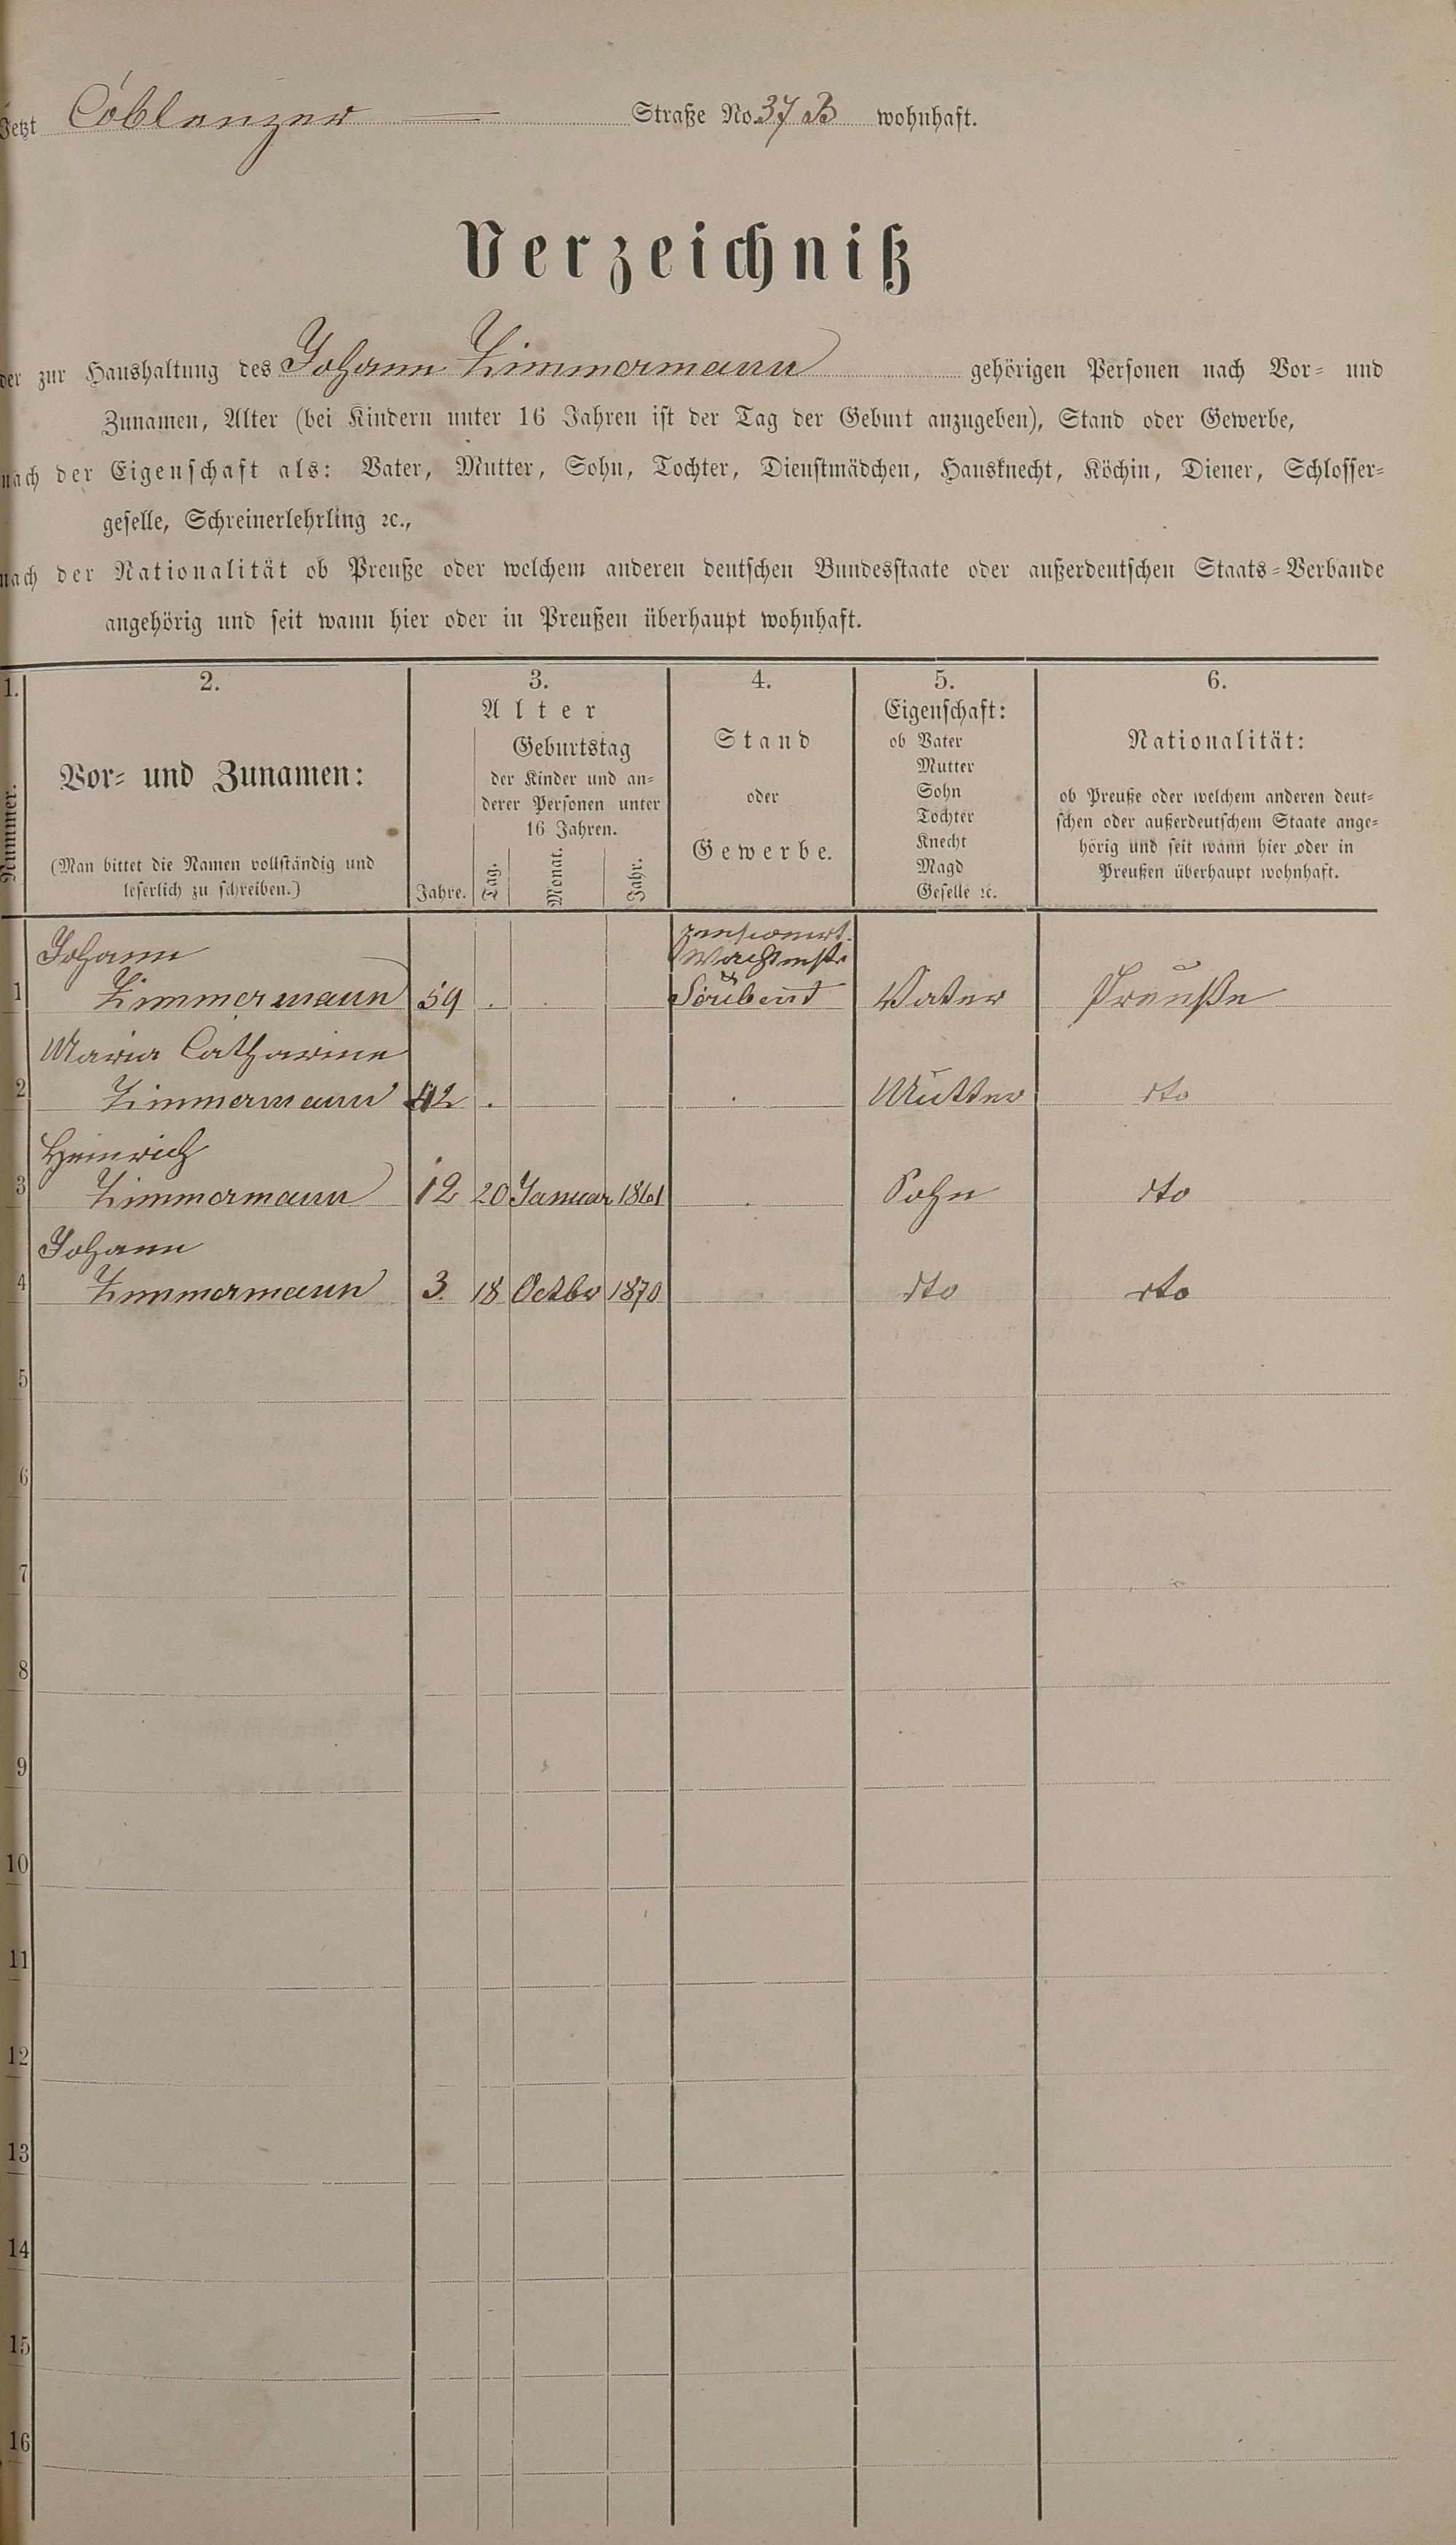 Jetzt Coblenzer Straße No. 37 B wohnhaft.
Verzeichniß
der zur Haushaltung des Johann Zimmermann gehörigen Personen nach Vor- und
Zunamen, Alter (bei Kindern unter 16 Jahren ist der Tag der Geburt anzugeben), Stand oder Gewerbe,
nach der Eigenschaft als: Vater, Mutter, Sohn, Tochter, Dienstmädchen, Hausknecht, Köchin, Diener, Schlosser-
geselle, Schreinerlehrling ꝛc.,
nach der Nationalität ob Preuße oder welchem anderen deutschen Bundesstaate oder außerdeutschen Staats-Verbande
angehörig und seit wann hier oder in Preußen überhaupt wohnhaft.
1.
Nummer.
2.
Vor- und Zunamen:
(Man bittet die Namen vollständig und
leserlich zu schreiben.)
3.
Alter
Jahre.
Geburtstag
der Kinder und an-
derer Personen unter
16 Jahren.
Tag.
Monat.
Jahr.
4.
Stand
oder
Gewerbe.
5.
Eigenschaft:
ob Vater
Mutter
Sohn
Tochter
Knecht
Magd
Geselle ꝛc.
6.
Nationalität:
ob Preuße oder welchem anderen deut-
schen oder außerdeutschem Staate ange-
hörig und seit wann hier oder in
Preußen überhaupt wohnhaft.
Johann pensionirt.
Wachtmstr.
1 Zimmermann 59 Vater Preuße
Maria Catharina
2 Zimmermann 42 Mutter dto
Heinrich
3 Zimmermann 12 20 Januar 1861 Sohn dto
Johann
4 Zimmermann 3 18 Octbr 1870 dto dto
5
6
7
8
9
10
11
12
13
14
15
16